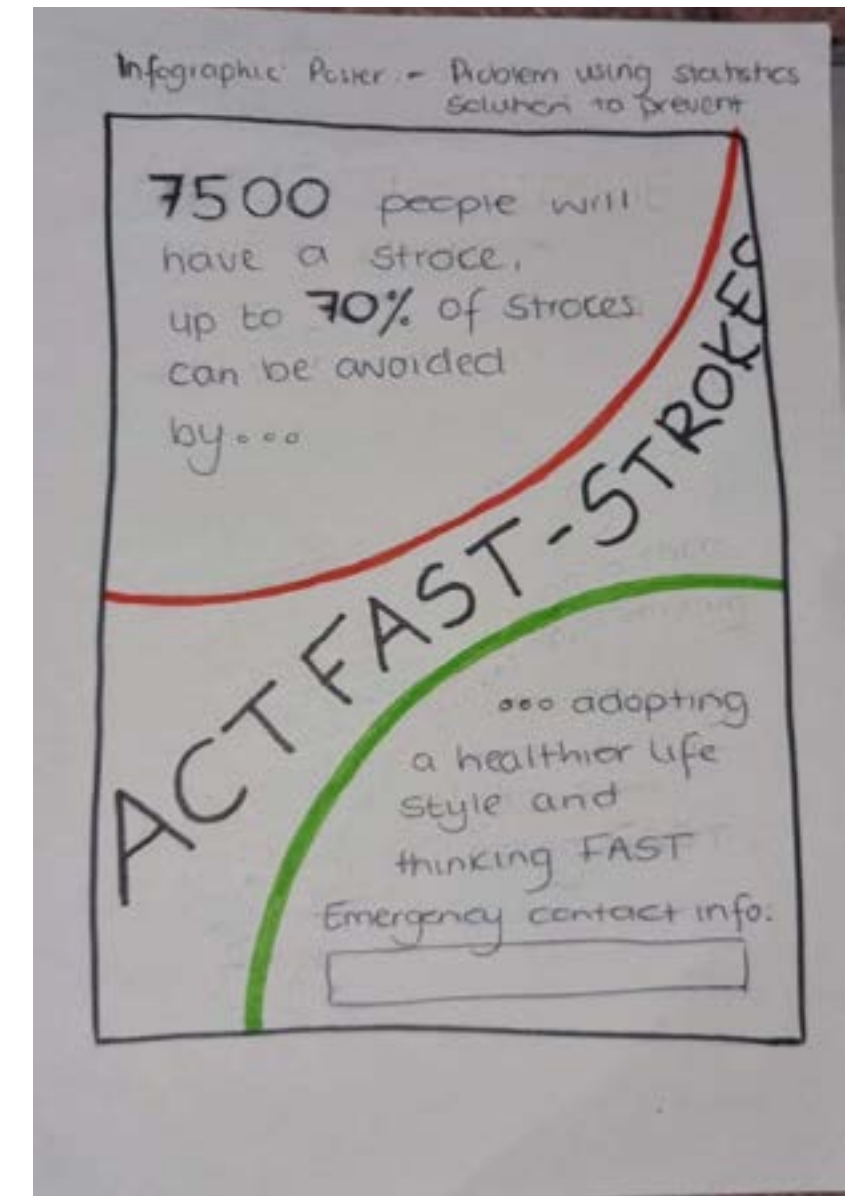 Infographic Poster:- Problem using statistics
solution to prevent
7500 people will
have a stroce,
up to 70% of stroces
can be avoided
by...
ACT FAST-STROKES
... adopting
a healthier life
style and
thinking FAST
Emergency contact info: